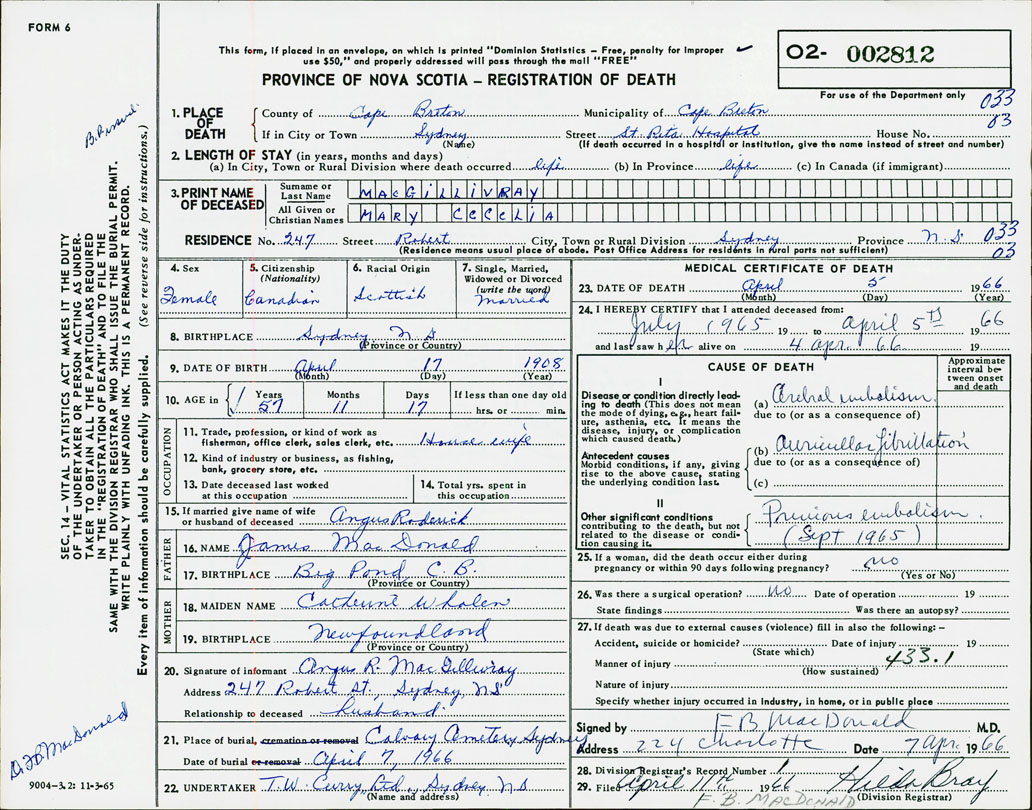 FORM 6
This form, if placed in an envelope, on which is printed "Dominion Statistics – Free, penalty for improper
use $50," and properly addressed will pass through the mail "FREE"
PROVINCE OF NOVA SCOTIA – REGISTRATION OF DEATH
O2- 002812
For use of the Department only
033
03
SEC. 14 – VITAL STATISTICS ACT MAKES IT THE DUTY
OF THE UNDERTAKER OR PERSON ACTING AS UNDER-
TAKER TO OBTAIN ALL THE PARTICULARS REQUIRED
IN THE "REGISTRATION OF DEATH" AND TO FILE THE
SAME WITH THE DIVISION REGISTRAR WHO SHALL ISSUE THE BURIAL PERMIT.
WRITE PLAINLY WITH UNFADING INK. THIS IS A PERMANENT RECORD.
Every item of information should be carefully supplied. (See reverse side for instructions.)
Dr F B MacDonald
9004–3.2: 11-3-65
1. PLACE OF DEATH
County of Cape Breton Municipality of Cape Breton
If in City or Town Sydney Street St. Rita Hospital House No.
(Name) (If death occurred in a hospital or institution, give the name instead of street and number)
2. LENGTH OF STAY (in years, months and days)
(a) In City, Town or Rural Division where death occurred life (b) In Province life (c) In Canada (if immigrant)
3. PRINT NAME OF DECEASED
Surname or Last Name MACGILLIVRAY
All Given or Christian Names MARY CECELIA
RESIDENCE No. 247 Street Robert City, Town or Rural Division Sydney Province N.S. 033
(Residence means usual place of abode. Post Office Address for residents in rural parts not sufficient) 03
4. Sex Female
5. Citizenship (Nationality) Canadian
6. Racial Origin Scottish
7. Single, Married, Widowed or Divorced (write the word) Married
8. BIRTHPLACE Sydney N S
(Province or Country)
9. DATE OF BIRTH April 17 1908
(Month) (Day) (Year)
10. AGE in Years 57 Months 11 Days 17 If less than one day old hrs. or min.
OCCUPATION
11. Trade, profession, or kind of work as fisherman, office clerk, sales clerk, etc. House wife
12. Kind of industry or business, as fishing, bank, grocery store, etc.
13. Date deceased last worked at this occupation
14. Total yrs. spent in this occupation
15. If married give name of wife or husband of deceased Angus Roderick
FATHER
16. NAME James MacDonald
17. BIRTHPLACE Big Pond, C.B.
(Province or Country)
MOTHER
18. MAIDEN NAME Catherine Whalen
19. BIRTHPLACE Newfoundland
(Province or Country)
20. Signature of informant Angus R. MacGillivray
Address 247 Robert St., Sydney, NS
Relationship to deceased husband
21. Place of burial, cremation or removal Calvary Cemetery Sydney
Date of burial or removal April 7, 1966
22. UNDERTAKER T.W. Curry Ltd., Sydney, N.S.
(Name and address)
MEDICAL CERTIFICATE OF DEATH
23. DATE OF DEATH April 5 1966
(Month) (Day) (Year)
24. I HEREBY CERTIFY that I attended deceased from:
July 1965 19 to April 5th 1966
and last saw her alive on 4 apr. 66
CAUSE OF DEATH
Approximate interval between onset and death
I
Disease or condition directly leading to death (This does not mean the mode of dying, e.g., heart failure, asthenia, etc. It means the disease, injury, or complication which caused death.)
(a) Cerebral embolism
due to (or as a consequence of)
Antecedent causes
Morbid conditions, if any, giving rise to the above cause, stating the underlying condition last.
(b) Auricular fibrillation
due to (or as a consequence of)
(c)
II
Other significant conditions contributing to the death, but not related to the disease or condition causing it.
Previous embolism.
(Sept 1965)
25. If a woman, did the death occur either during pregnancy or within 90 days following pregnancy? no
(Yes or No)
26. Was there a surgical operation? no Date of operation 19
State findings Was there an autopsy?
27. If death was due to external causes (violence) fill in also the following:–
Accident, suicide or homicide? Date of injury 19
(State which)
Manner of injury 433.1
(How sustained)
Nature of injury
Specify whether injury occurred in industry, in home, or in public place
Signed by F B MacDonald M.D.
Address 224 Charlotte Date 7 Apr. 1966
28. Division Registrar's Record Number 1
29. Filed April 11th 1966 Hilda Bray
F. B. MACDONALD (Division Registrar)